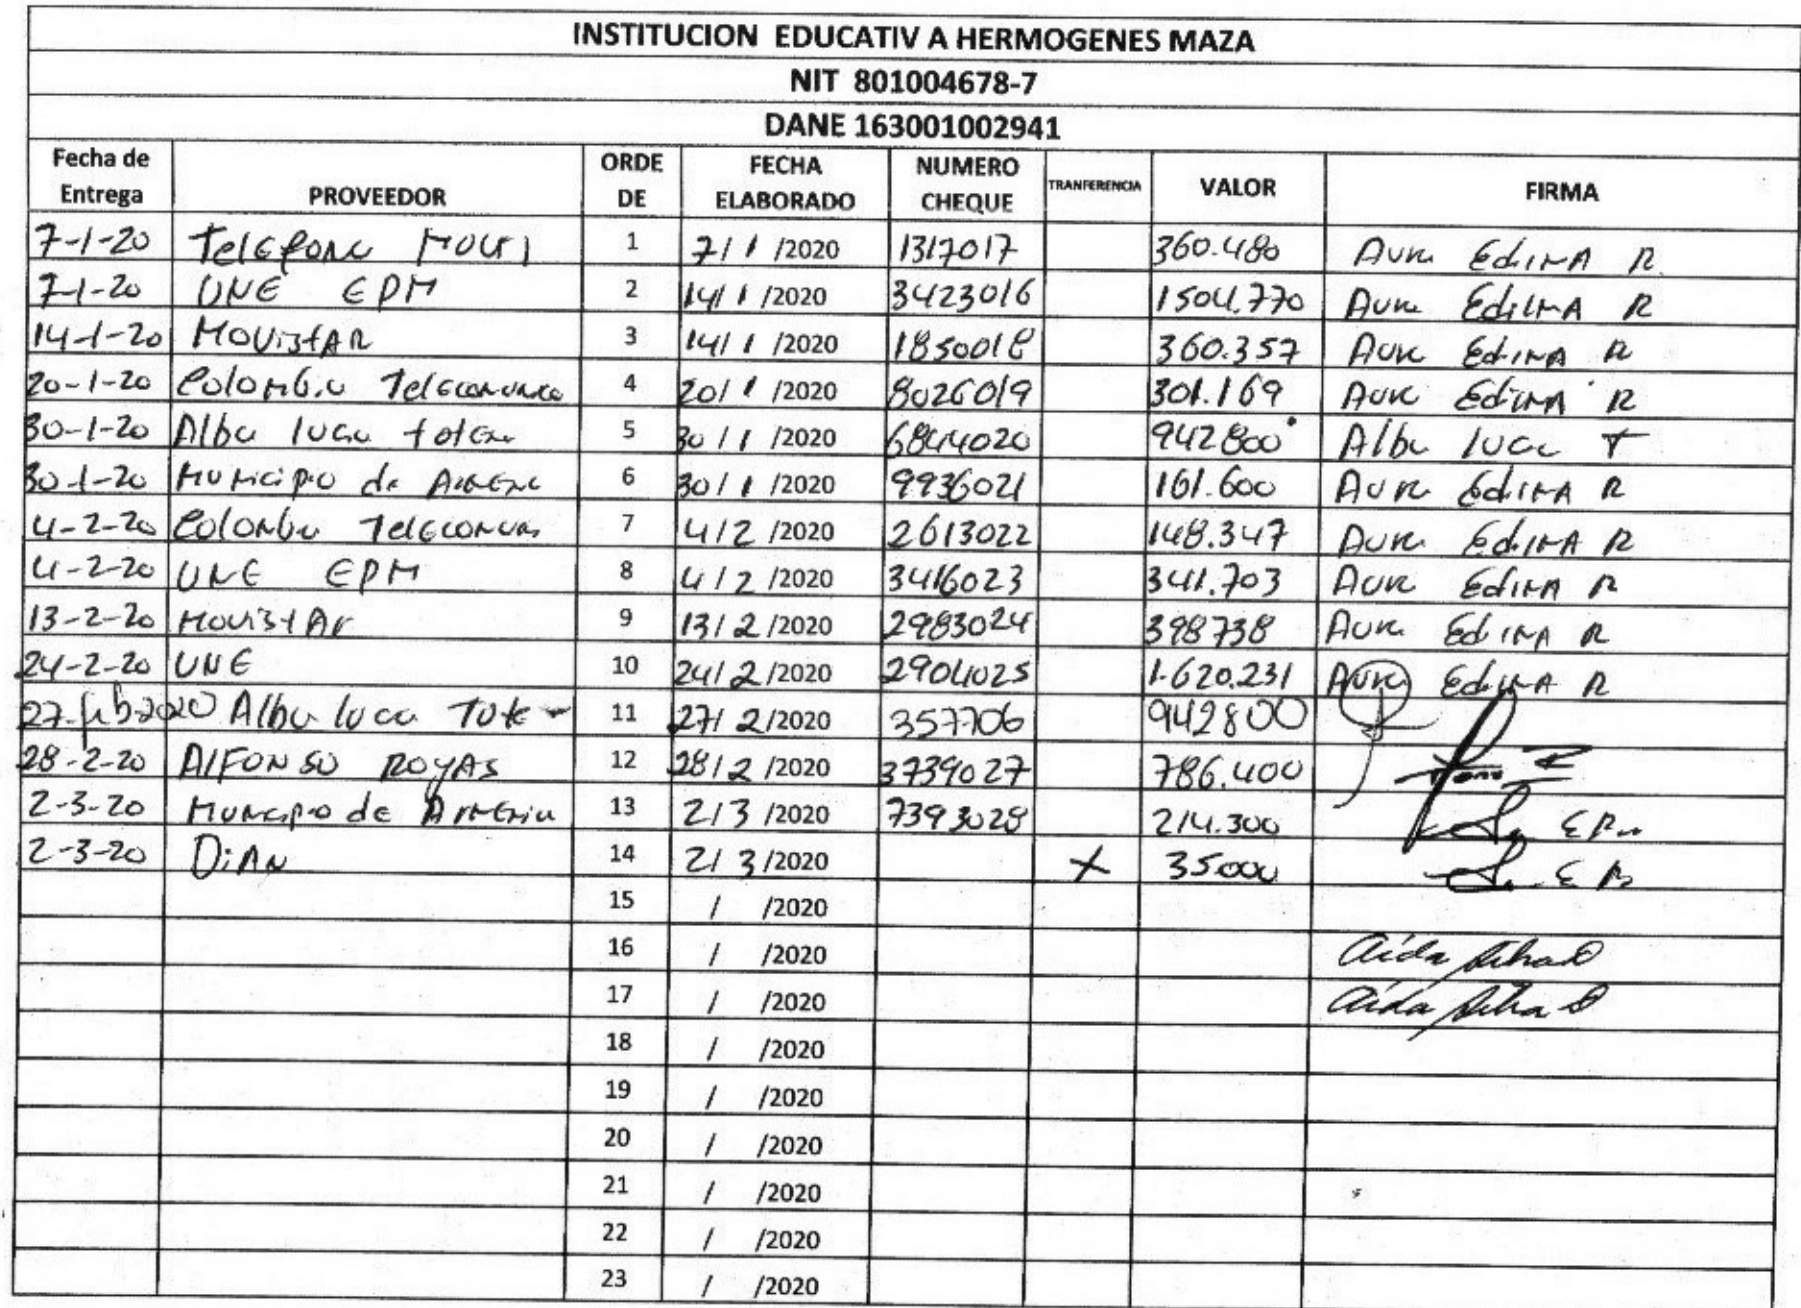 INSTITUCION EDUCATIV A HERMOGENES MAZA
NIT 801004678-7
DANE 163001002941
Fecha de Entrega PROVEEDOR ORDE DE FECHA ELABORADO NUMERO CHEQUE TRANFERENCIA VALOR FIRMA
7-1-20 Telefonu 1 7/1/2020 1317017 360.480 Aura Edilma R.
7-1-20 UNE EPM 2 14/1/2020 3423016 1504.770 Aura Edilma R
14-1-20 MOVistAR 3 14/1/2020 1850018 360.357 Aura Edilma R
20-1-20 Colombia 4 20/1/2020 8026019 301.169 Aura Edilma R
30-1-20 Alba luca 5 30/1/2020 6844020 942800 Alba luca T
30-1-20 Municipio de Armenia 6 30/1/2020 9936021 161.600 Aura Edilma R
4-2-20 Colombia 7 4/2/2020 2613022 148.347 Aura Edilma R
4-2-20 UNE EPM 8 4/2/2020 3416023 341.703 Aura Edilma R
13-2-20 MOVistAr 9 13/2/2020 2983024 398738 Aura Edilma R
24-2-20 UNE 10 24/2/2020 2904025 1.620.231 Aura Edilma R
27-feb2020 Alba luca 11 27/2/2020 357706 942800
28-2-20 AlFONSO ROYAS 12 28/2/2020 3739027 786.400
2-3-20 Muncipio de Armenia 13 2/3/2020 7393028 214.300
2-3-20 DiAN 14 2/3/2020 X 35000
15 / /2020
16 / /2020 Aida
17 / /2020 Aida
18 / /2020
19 / /2020
20 / /2020
21 / /2020
22 / /2020
23 / /2020